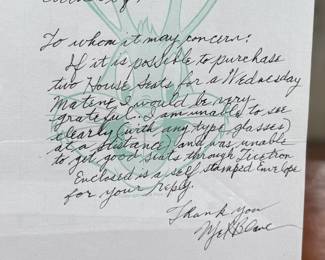 To whom it may concern:
If it is possible to purchase
two House Seats for a Wednesday
Matene, I would be very
grateful. I am unable to see
clearly (with any type glasses)
at a distance, and was unable
to get good seats through Ticetron
Enclosed is a self stamped Envelope
for your reply.
Thank you